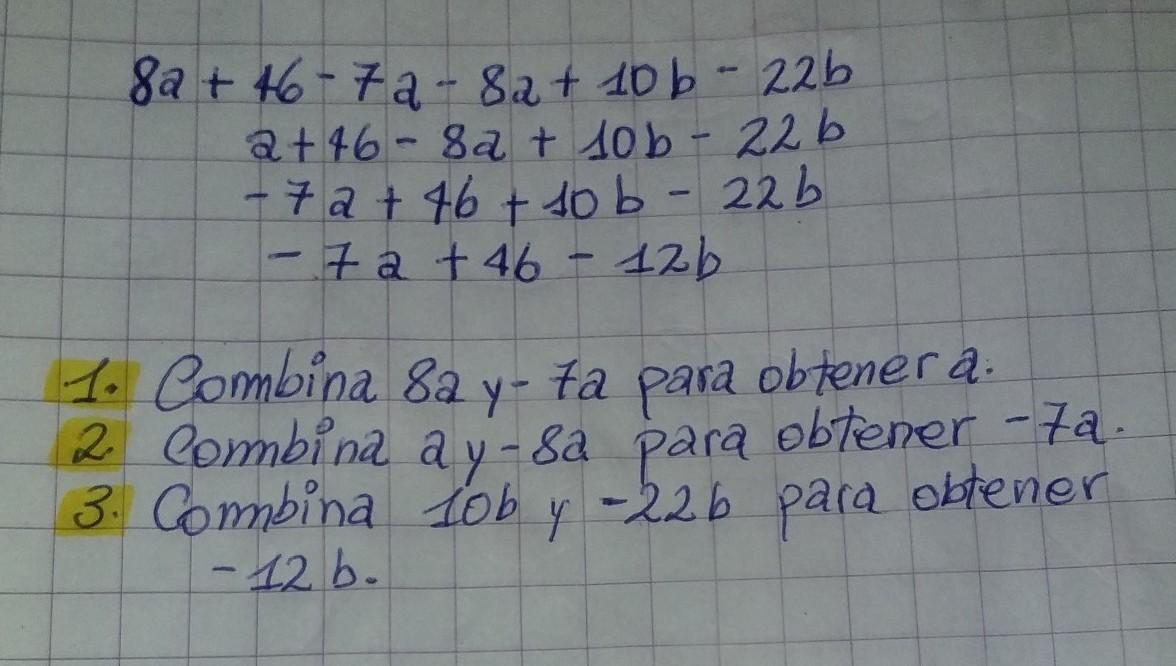 8a + 46 - 7a - 8a + 10b - 22b
a + 46 - 8a + 10b - 22b
- 7a + 46 + 10b - 22b
- 7a + 46 - 12b
1. Combina 8a y -7a para obtener a.
2. Combina a y -8a para obtener -7a.
3. Combina 10b y -22b para obtener
-12b.